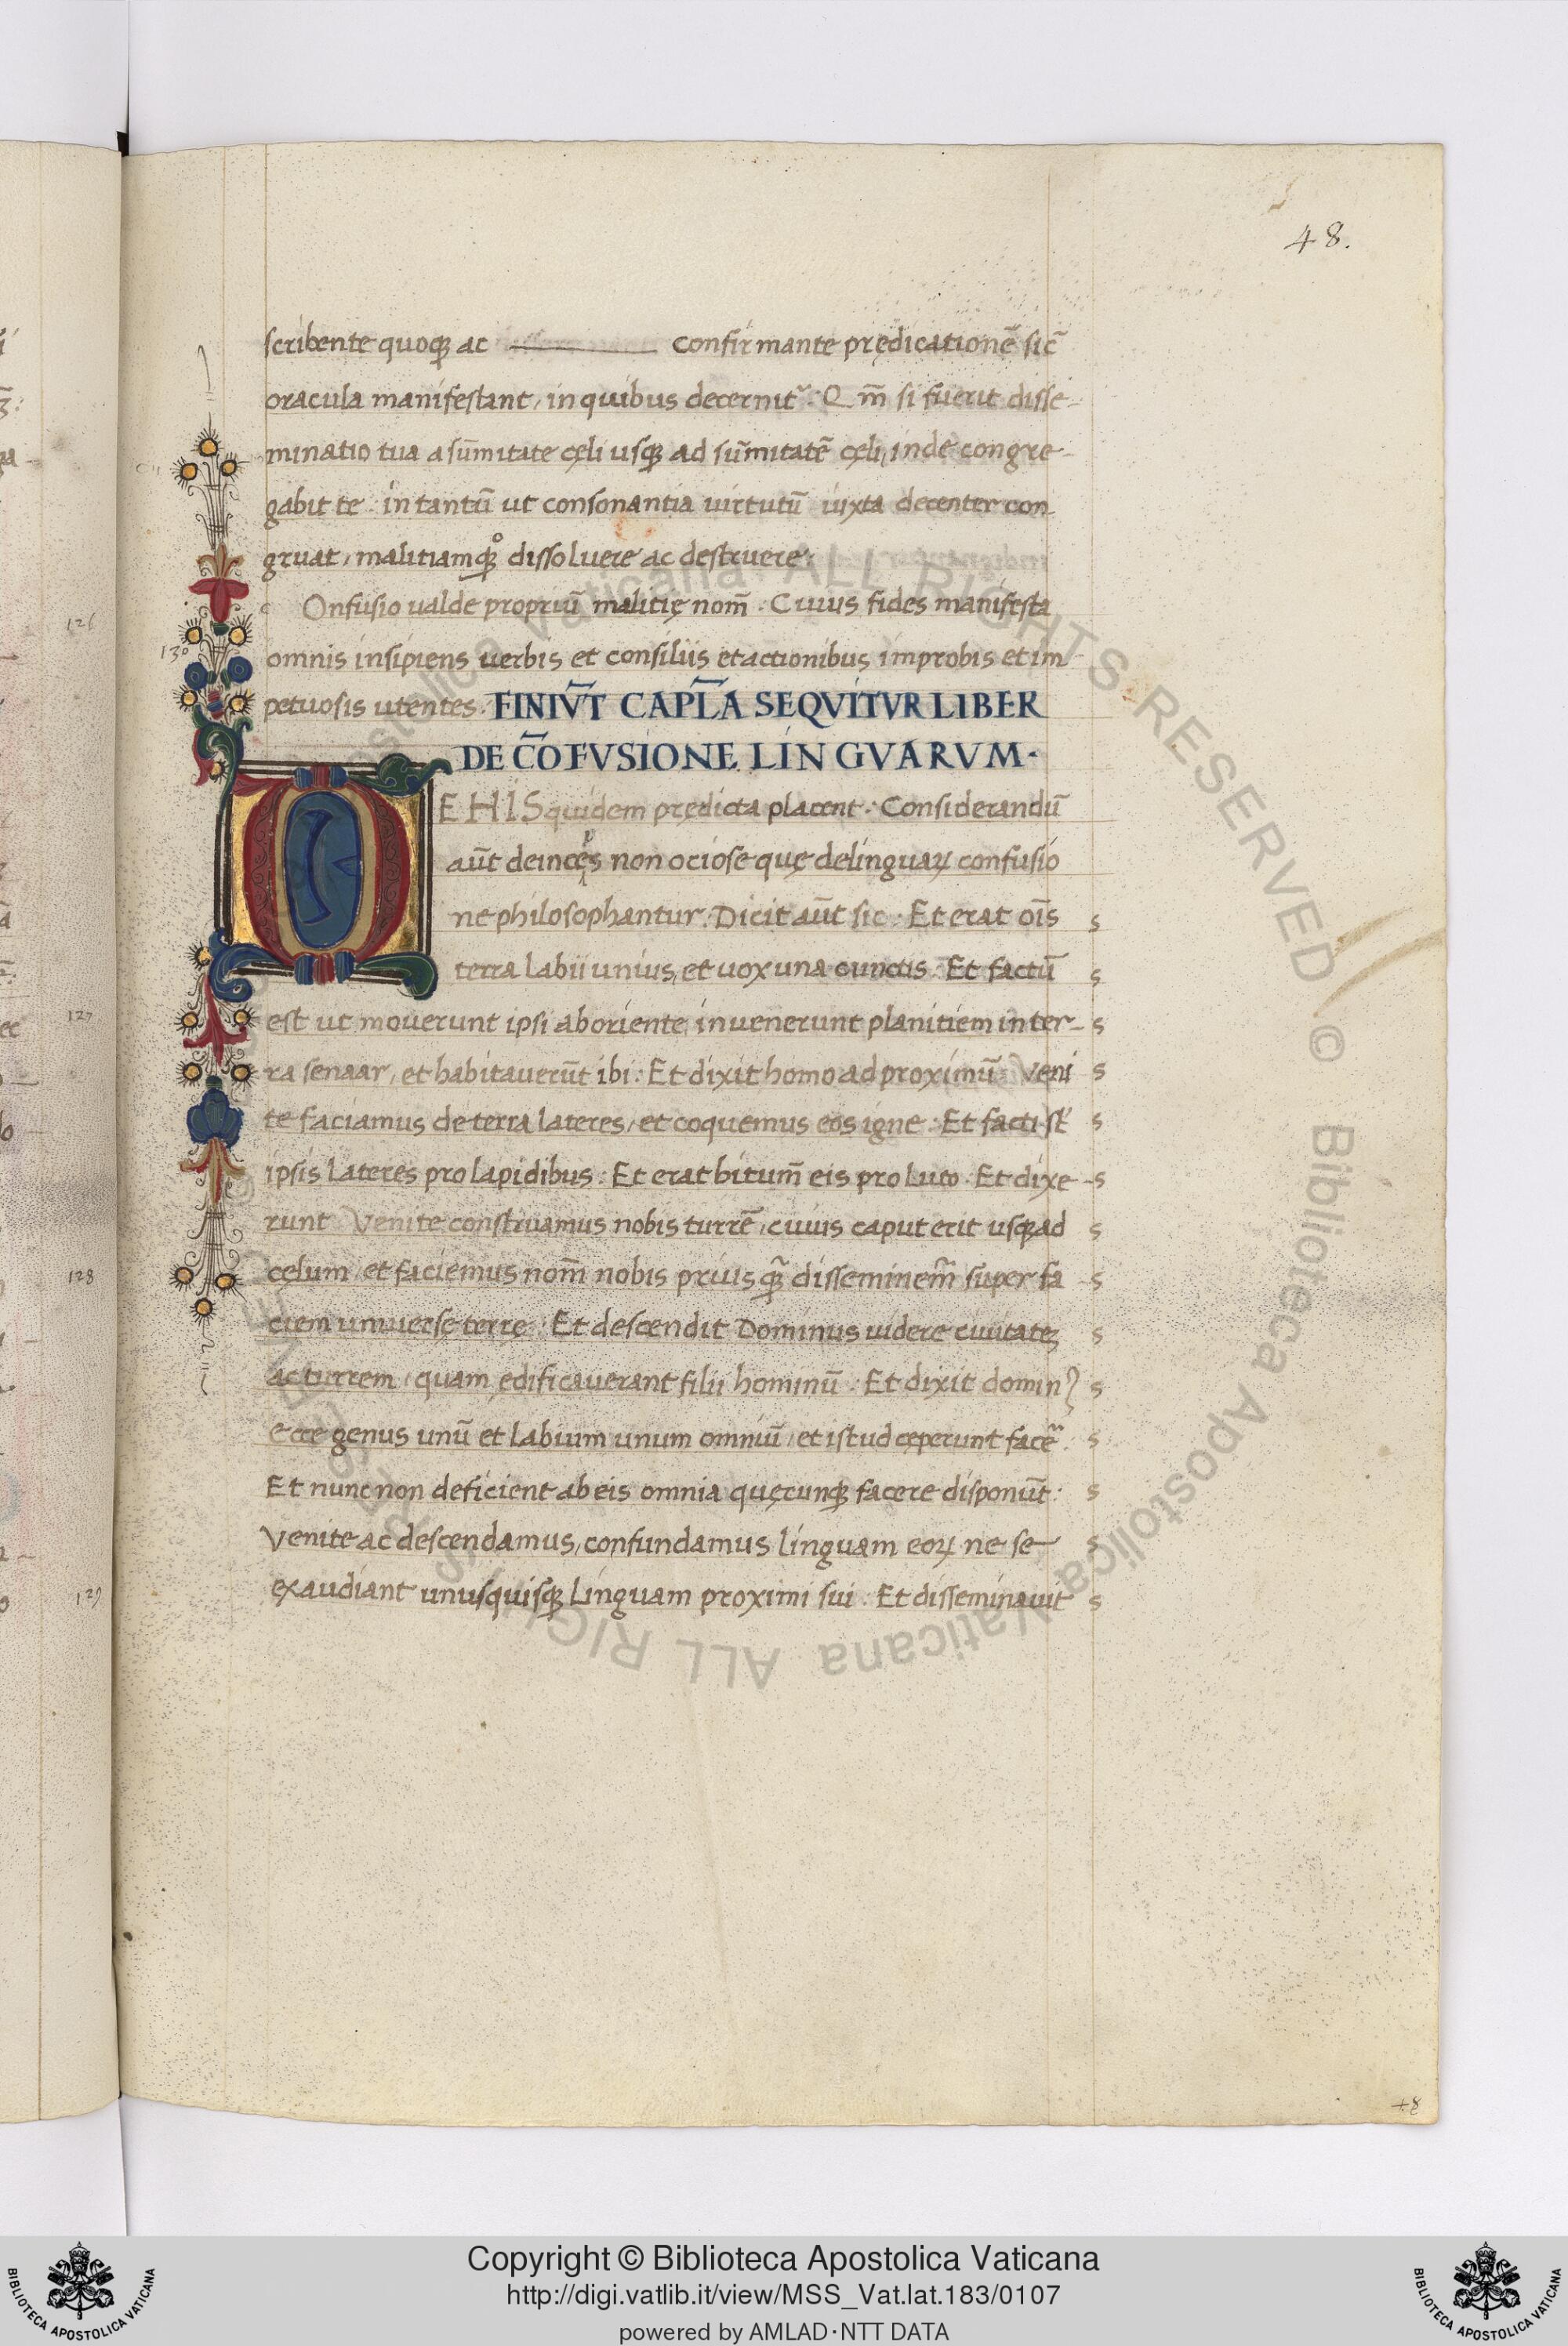 48.
scribente quoqꝫ ac confirmante prędicationē sic̄
oracula manifestant, in quibus decernit᷑: Qm̄ si fuerit disse-
minatio tua a sūmitate cęli usqꝫ ad sūmitatē cęli, inde congre-
gabit te: in tantū ut consonantia uirtutū iuxta decenter con
gruat, malitiamqꝫ dissoluere ac destruere.
c Onfusio ualde propriū malitię nom̄: Cuius fides manifesta
130
omnis insipiens uerbis et consiliis et actionibus improbis et im
petuosis utentes. FINIV̄T CAPL̄A SEQVITVR LIBER
DE CŌFVSIONE LINGVARVM.
DE HIS quidem prędicta placent: Considerandū
aūt deinceps non ociose quę de linguaꝝ confusio
ne philosophantur: Dicit aūt sic: Et erat oīs s
terra labii unius, et uox una cunctis: Et factū s
est ut mouerunt ipsi ab oriente, inuenerunt planitiem in ter- s
ra senaar, et habitauerūt ibi: Et dixit homo ad proximū: Veni s
te faciamus de terra lateres, et coquemus eos igne: Et facti st̄ s
ipsis lateres pro lapidibus: Et erat bitum̄ eis pro luto: Et dixe- s
runt Venite construamus nobis turrē, cuius caput erit usqꝫ ad s
cęlum, et faciemus nom̄ nobis prius qꝫ̄ disseminem̄ super fa s
ciem uniuerse terrę: Et descendit Dominus uidere ciuitateꝫ s
ac turrem, quam ędificauerant filii hominū: Et dixit domin᷒ s
ecce genus unū et labium unum omniū, et istud cęperunt facē: s
Et nunc non deficient ab eis omnia quęcunqꝫ facere disponūt: s
Venite ac descendamus, confundamus linguam eoꝝ ne se s
exaudiant unusquisqꝫ linguam proximi sui: Et disseminauit s
126
127
128
129
48
© Biblioteca Apostolica Vaticana ALL RIGHTS RESERVED
BIBLIOTECA APOSTOLICA VATICANA
Copyright © Biblioteca Apostolica Vaticana
http://digi.vatlib.it/view/MSS_Vat.lat.183/0107
powered by AMLAD·NTT DATA
BIBLIOTECA APOSTOLICA VATICANA